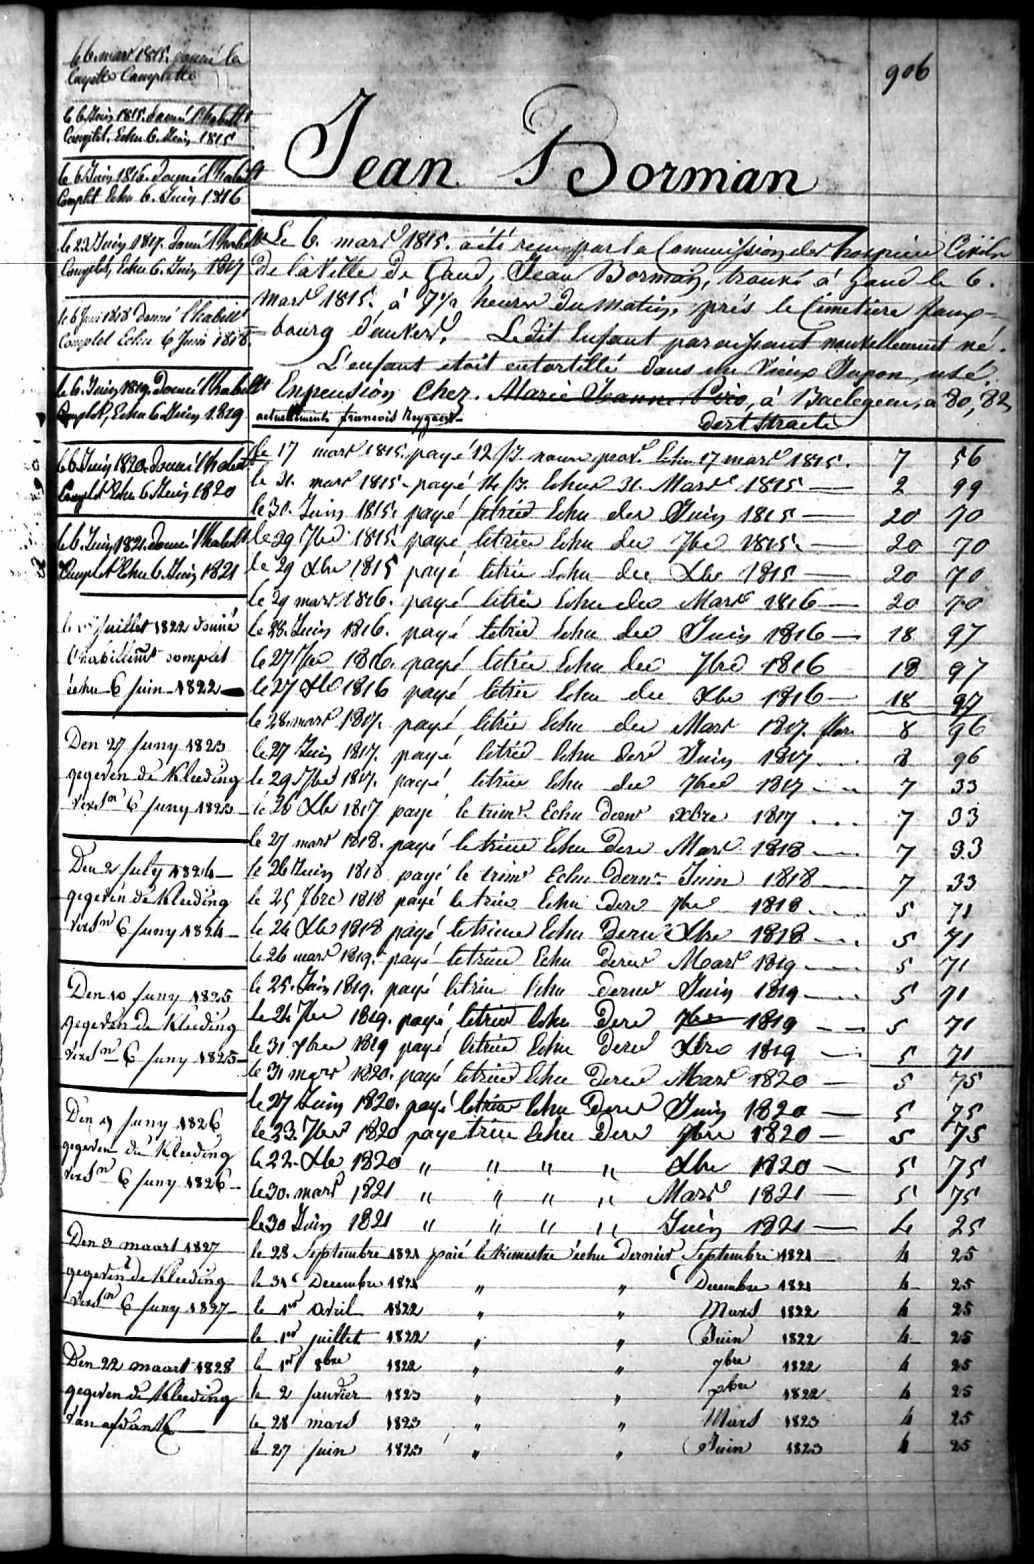 906
Jean Borman
le 6 mars 1815. donné la
Layette Complette
le 6 Juin 1815. donné l'habillt
Complet. Echu 6. Juin 1815
le 6 Juin 1816. donné l'habillt
Complet Echu 6. Juin 1816
le 23 Juin 1817. donné l'habillt
Complet, Echu 6. Juin 1817
le 6 Juin 1818 donné l'habillt
Complet Echu 6 Juin 1818.
le 6. Juin 1819. donné l'habillt
Complet, Echu 6. Juin 1819
le 6 Juin 1820. donné l'habillt
Complet Echu 6 Juin 1820
le 6. Juin 1821. donné l'habillt
Complet Echu 6 Juin 1821
le 1er Juillet 1822 donné
l'habillemt complet
échu 6 Juin 1822
Den 27 Juny 1823
gegeven de Kleeding
6 Juny 1823
Den 2 July 1824
gegeven de Kleeding
6 Juny 1824
Den 10 Juny 1825
gegeven de Kleeding
6 Juny 1825
Den 9 Juny 1826
gegeven de Kleeding
6 Juny 1826
Den 3 maart 1827
gegeven de Kleeding
6 Juny 1827
Den 22 maart 1828
gegeven de Kleeding
Le 6. mars 1815. a été reçu par la Commission des hospices Civils
de la Ville de Gand, Jean Borman, trouvé à Gand le 6.
mars 1815. à 7½ heures du matin, près le Cimetière faux-
bourg d'anvers. Ledit Enfant paroissant nouvellement né.
L'enfant etoit entortillé dans un Vieux Jupon, usé.
Enpension Chez. Marie Jeanne, à Baelegem, a 80, 82
actuellement francois
le 17 mars 1815. payé 12 Echu 17 mars 1815. 7 56
le 31. mars 1815. payé 14 Echus 31. Mars 1815 — 2 99
le 30. Juin 1815. payé letrim Echu der Juin 1815 — 20 70
le 29 7bre 1815. payé letrim Echu der 7bre 1815. — 20 70
le 29 Xbre 1815 payé letrim Echu der Xbre 1815 — 20 70
le 29 mars 1816. payé letrim Echu der Mars 1816 — 20 70
le 28. Juin 1816. payé letrim Echu der Juin 1816 — 18 97
le 27 7bre 1816. payé letrim Echu der 7bre 1816 18 97
le 27 Xbre 1816 payé letrim Echu der Xbre 1816 — 18 97
le 28. mars 1817. payé letrim Echu der Mars 1817. flor. 8 96
le 27 Juin 1817. payé letrim Echu der Juin 1817 8 96
le 29 7bre 1817. payé letrim Echu der 7bre 1817 7 33
le 26 Xbre 1817 payé le trimr Echu dernr Xbre 1817 7 33
le 27 mars 1818. payé letrim Echu derr Mars 1818 7 33
le 26 Juin 1818 payé le trimr Echu dernr Juin 1818 7 33
le 25 7bre 1818 payé letrim Echu derr 7bre 1818 5 71
le 24 Xbre 1818 payé letrim Echu dernr Xbre 1818 5 71
le 26 mars 1819. payé letrim Echu dernr Mars 1819 5 71
le 25. Juin 1819. payé letrim Echu dernr Juin 1819 5 71
le 24 7bre 1819. payé letrim Echu derr 7bre 1819 5 71
le 31 Xbre 1819 payé letrim Echu derr Xbre 1819 5 71
le 31 mars 1820. payé letrim Echu derr Mars 1820 — 5 75
le 27 Juin 1820. payé letrim Echu derr Juin 1820 — 5 75
le 23. 7bre 1820 paye trim Echu derr 7bre 1820 — 5 75
le 22. Xbre 1820 " " " " Xbre 1820 — 5 75
le 30. mars 1821 " " " " Mars 1821 — 5 75
le 30 Juin 1821 " " " " Juin 1821 — 4 25
le 28 Septembre 1821 paié le trimestre échu dernier Septembre 1821 4 25
le 31 Decembre 1821 " " Decembre 1821 4 25
le 1er avril 1822 " " Mars 1822 4 25
le 1er juillet 1822 " " Juin 1822 4 25
le 1er 8bre 1822 " " 7bre 1822 4 25
le 2 janvier 1823 " " Xbre 1822 4 25
le 28 mars 1823 " " Mars 1823 4 25
le 27 juin 1823 " " Juin 1823 4 25